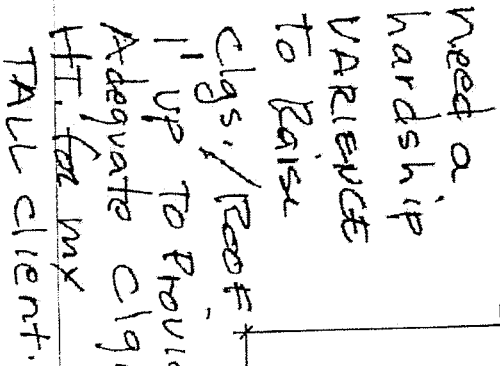 need a
hardship
VARIENCE
To Raise
Clgs./ROOF
1" UP TO Provi
Adequate Clg
HT. for my
TALL client.